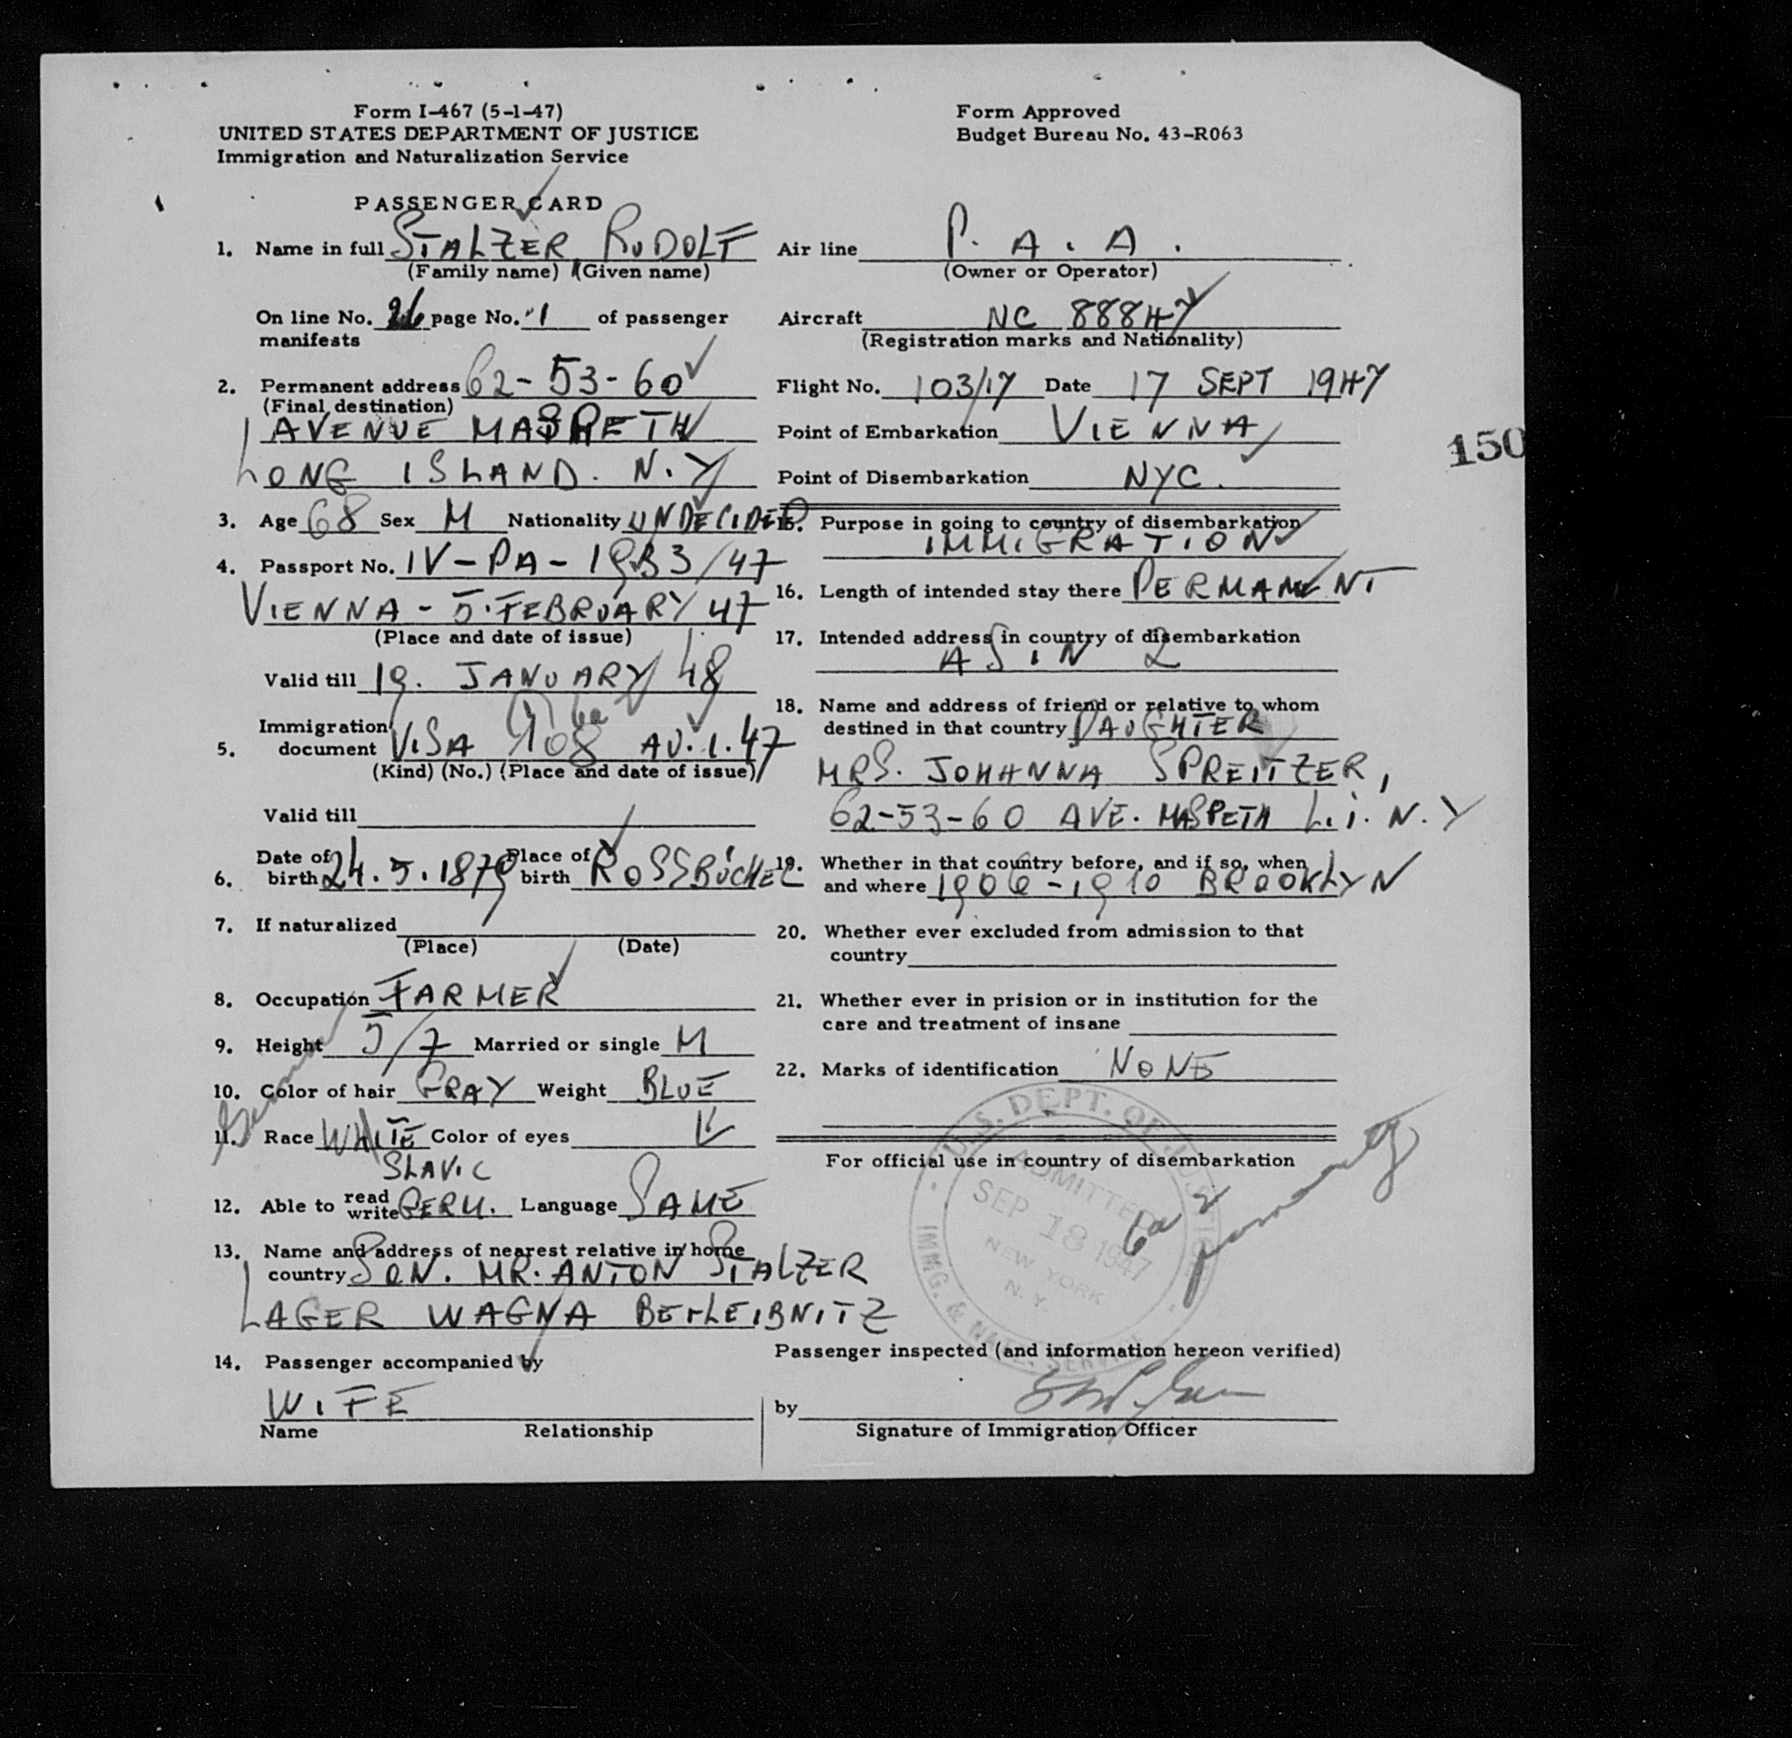 Form I-467 (5-1-47)
UNITED STATES DEPARTMENT OF JUSTICE
Immigration and Naturalization Service
Form Approved
Budget Bureau No. 43-R063
PASSENGER CARD
1. Name in full STALZER RUDOLF
(Family name) (Given name)
On line No. 26 page No. 1 of passenger
manifests
2. Permanent address 62-53-60
(Final destination)
AVENUE MASPETH
LONG ISLAND. N.Y
3. Age 68 Sex M Nationality UNDECIDED
4. Passport No. IV-PA-1933/47
VIENNA - 5. FEBRUARY 47
(Place and date of issue)
Valid till 19. JANUARY 48
Immigration
5. document VISA 108 AU. 1. 47
(Kind) (No.) (Place and date of issue)
Valid till
6. Date of birth 24.5.1879 Place of birth ROSSBÜCHEL
7. If naturalized
(Place) (Date)
8. Occupation FARMER
9. Height 5/7 Married or single M
10. Color of hair GRAY Weight BLUE
German
11. Race WHITE Color of eyes
SLAVIC
12. Able to read write GERM. Language SAME
13. Name and address of nearest relative in home
country SON. MR. ANTON STALZER
LAGER WAGNA BEI LEIBNITZ
14. Passenger accompanied by
WIFE
Name Relationship
Air line P. A. A.
(Owner or Operator)
Aircraft NC 88847
(Registration marks and Nationality)
Flight No. 103/17 Date 17 SEPT 1947
Point of Embarkation VIENNA
Point of Disembarkation NYC.
150
15. Purpose in going to country of disembarkation
IMMIGRATION
16. Length of intended stay there PERMANENT
17. Intended address in country of disembarkation
AS IN 2
18. Name and address of friend or relative to whom
destined in that country DAUGHTER
MRS. JOHANNA SPREITZER,
62-53-60 AVE. MASPETH L.I. N.Y
19. Whether in that country before, and if so, when
and where 1906-1910 BROOKLYN
20. Whether ever excluded from admission to that
country
21. Whether ever in prision or in institution for the
care and treatment of insane
22. Marks of identification NONE
For official use in country of disembarkation
U.S. DEPT. OF JUSTICE
ADMITTED
SEP 18 1947
NEW YORK
N.Y.
IMMG. & NATZ. SERVICE
6a2
Passenger inspected (and information hereon verified)
by
Signature of Immigration Officer